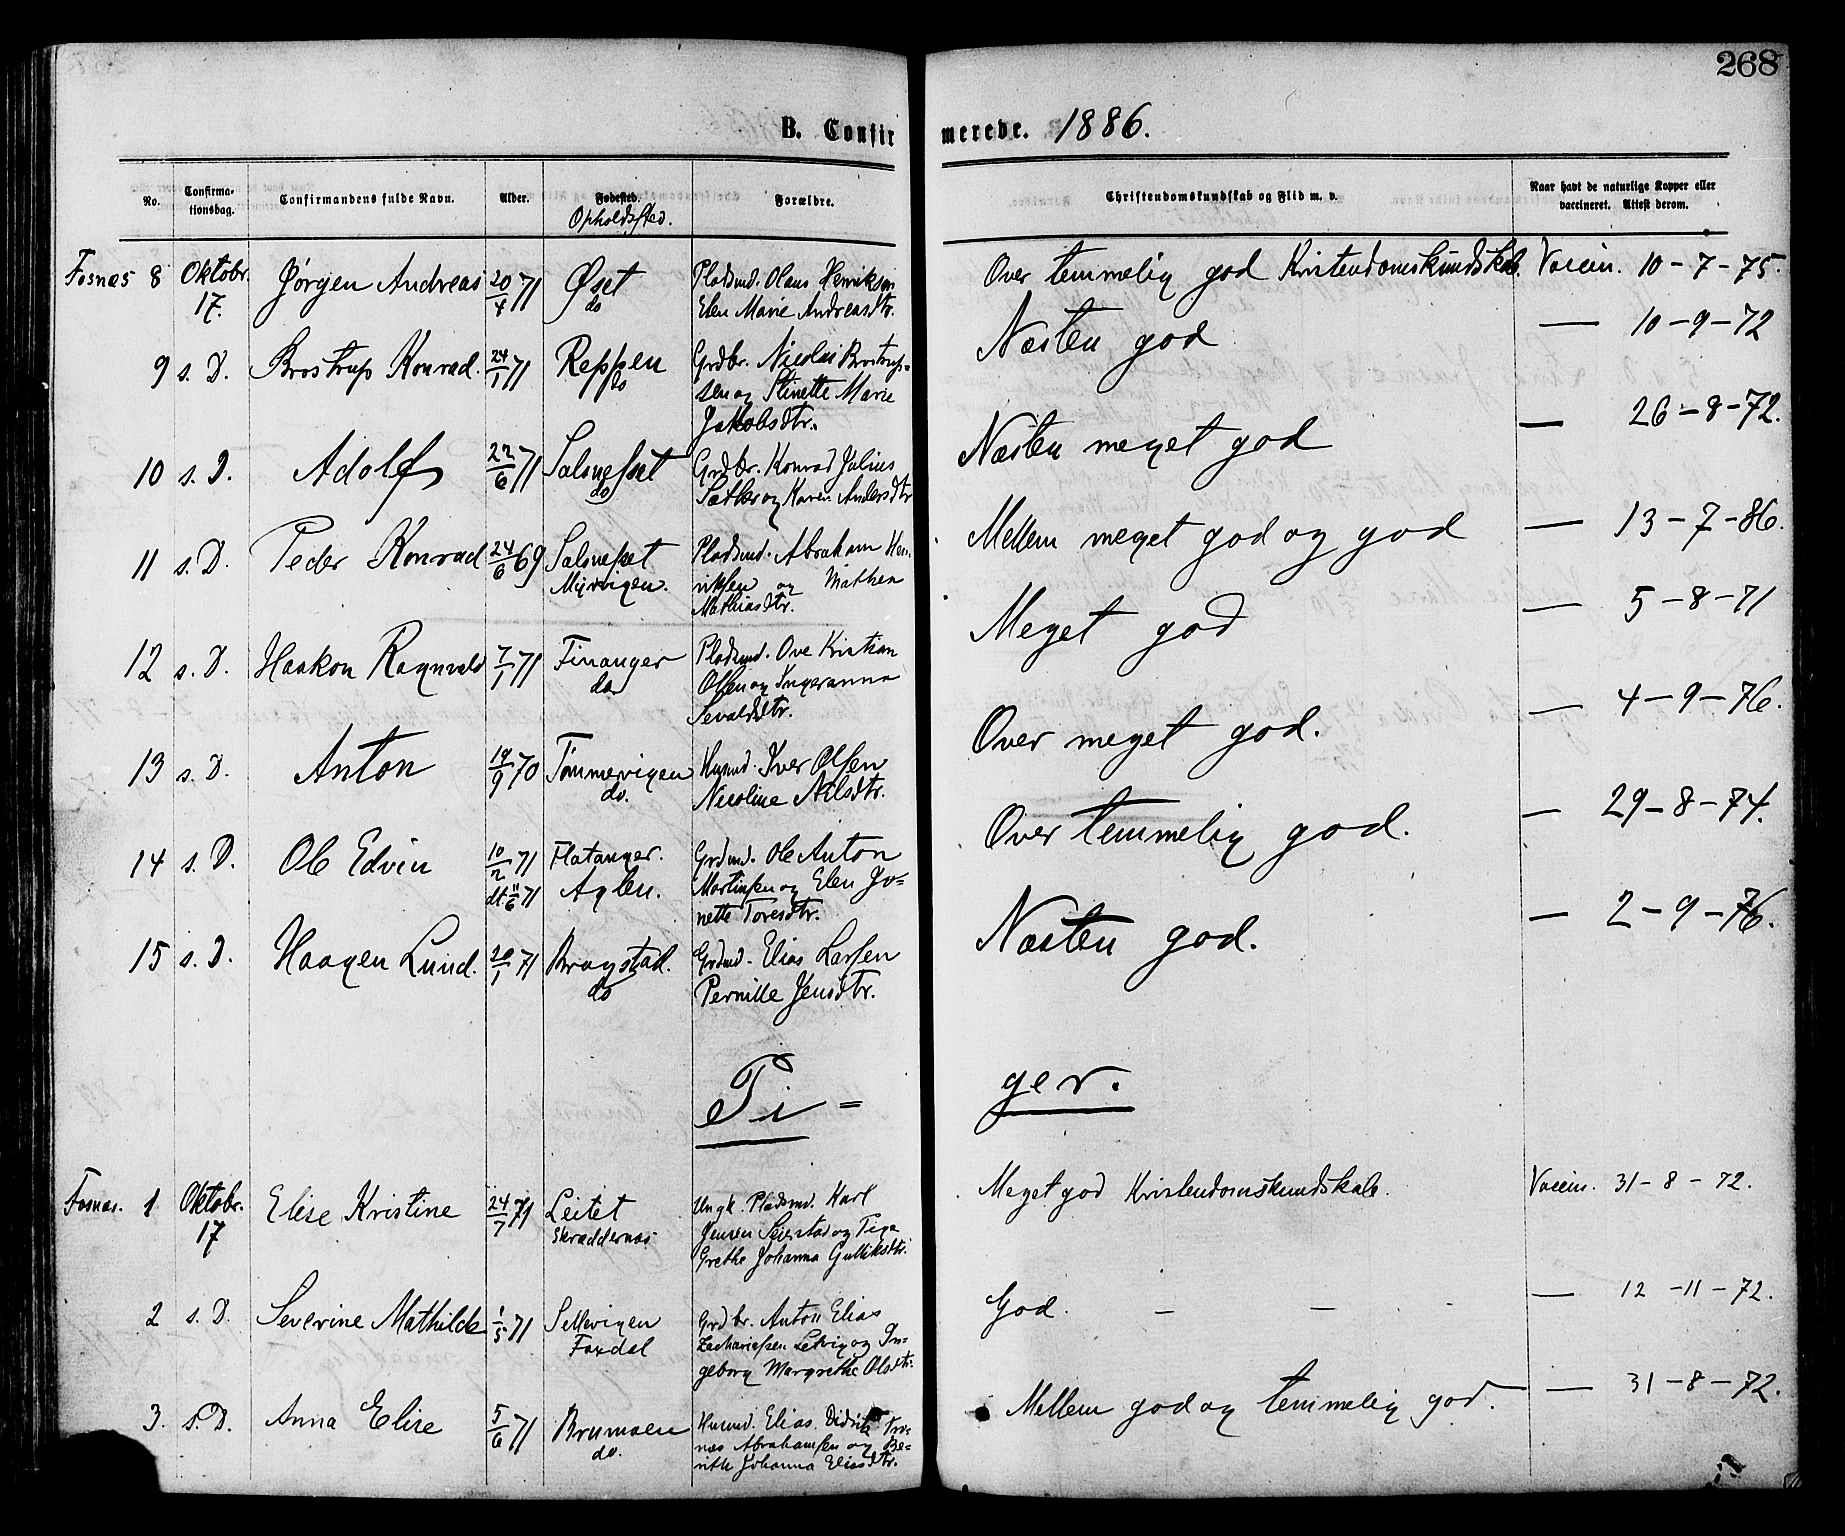 268
B. Confirmerede. 1886.
No.
Confirma-
tionsdag.
Confirmandens fulde Navn.
Alder.
Fødested.
Opholdssted.
Forældre.
Christendomskundskab og Flid m. v.
Naar havt de naturlige Kopper eller
vaccineret. Attest derom.
Fosnæs 8 Oktobr. 17. Jørgen Andreas 20/4 71 Øset do
Pladsmd. Olaus Henriksen
Elen Marie Andreasdtr.
Over temmelig god Kristendomskundskab. Vaccin. 10-7-75.
9 s. D. Brostrup Konrad. 24/1 71 Reppen do
Grdbr. Nicolai Brostrup-
sen og Stinette Marie
Jakobsdtr.
Næsten god — 10-9-72
10 s. D. Adolf 22/6 71 Salsnesset do
Grdbr. Konrad Julius
Sæther og Karen Andersdtr
Næsten meget god — 26-8-72.
11 s. D. Peder Konrad 24/6 69 Salsnesset Myrvigen.
Pladsmd. Abraham Hen-
riksen og Mathea
Mathiasdtr.
Mellem meget god og god — 13-7-86.
12 s. D. Haakon Ragnvald 7/1 71 Finanger do
Pladsmd. Ove Kristian
Olsen og Ingeranna
Sevaldsdtr.
Meget god — 5-8-71
13 s. D. Anton 19/9 70 Tømmervigen do.
Husmd. Iver Olsen
Nicoline Nilsdtr.
Over meget god. — 4-9-76.
14 s. D. Ole Edvin 10/2 71 dt. 11/6 71 Flatanger. Aglen.
Grdmd. Ole Anton
Martinsen og Elen Jo=
nette Toresdtr.
Over temmelig god. — 29-8-74.
15 s. D. Haagen Lund. 20/1 71 Bragstad. do
Grdmd. Elias Larsen
Pernille Jensdtr.
Næsten god. — 2-9-76.
Pi=ger.
Fosnæs. 1 Oktobr. 17 Elise Kristine 24/7 71 Leitet Skræddernæs
Ungk. Pladsmd. Karl
Jensen Seierstad og Pige
Grethe Johanna Gulliksdtr.
Meget god Kristendomskundskab. Vaccin. 31-8-72.
2 s. D. Severine Mathilde 1/5 71 Sellevigen Faxdal
Grdbr. Anton Elias
Zachariassen Letvig og In=
geborg Margrethe Olsdtr.
God. — — - — 12-11-72.
3. s. D. Anna Elise 5/6 71 Brumoen do.
Husmd. Elias Didrik
Abrahamsen og Be-
rith Johanna Eliasdtr.
Mellem god og temmelig god. — 31-8-72.